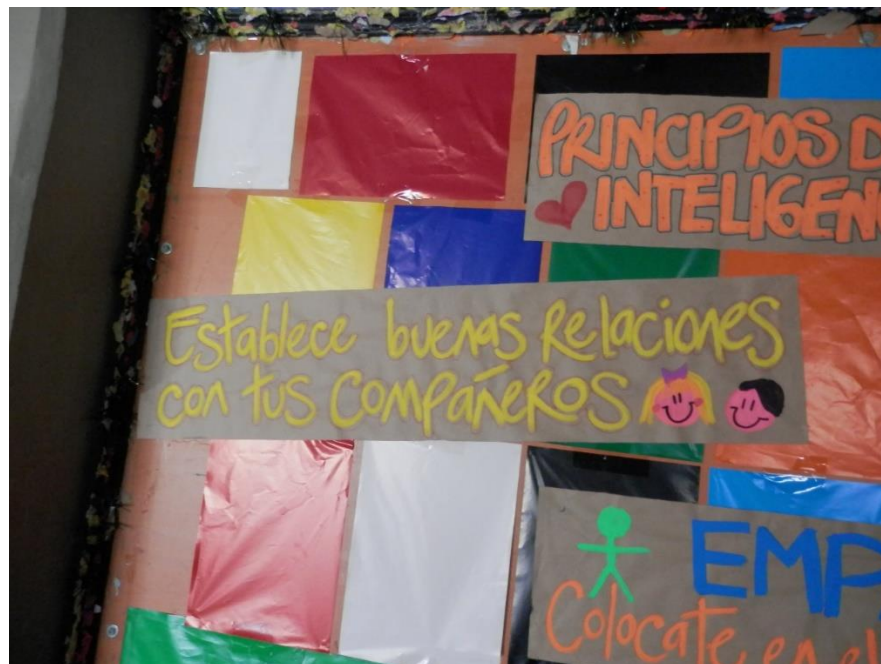 PRINCIPIOS D
INTELIGEN
Establece buenas Relaciones
con tus Compañeros
EMP
Colocate en el